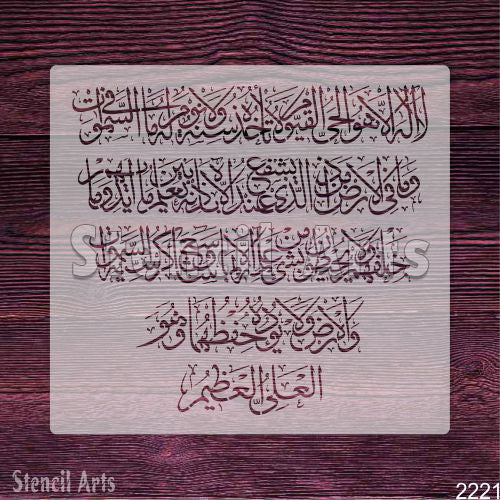 لا اله الا هو الحي القيوم لا تاخذه سنة ولا نوم له ما في السموات
وما في الارض من ذا الذي يشفع عنده الا باذنه يعلم ما بين ايديهم وما
خلفهم ولا يحيطون بشيء من علمه الا بما شاء وسع كرسيه السموات
Stencil Arts
والارض ولا يؤده حفظهما وهو
العلي العظيم
Stencil Arts
2221